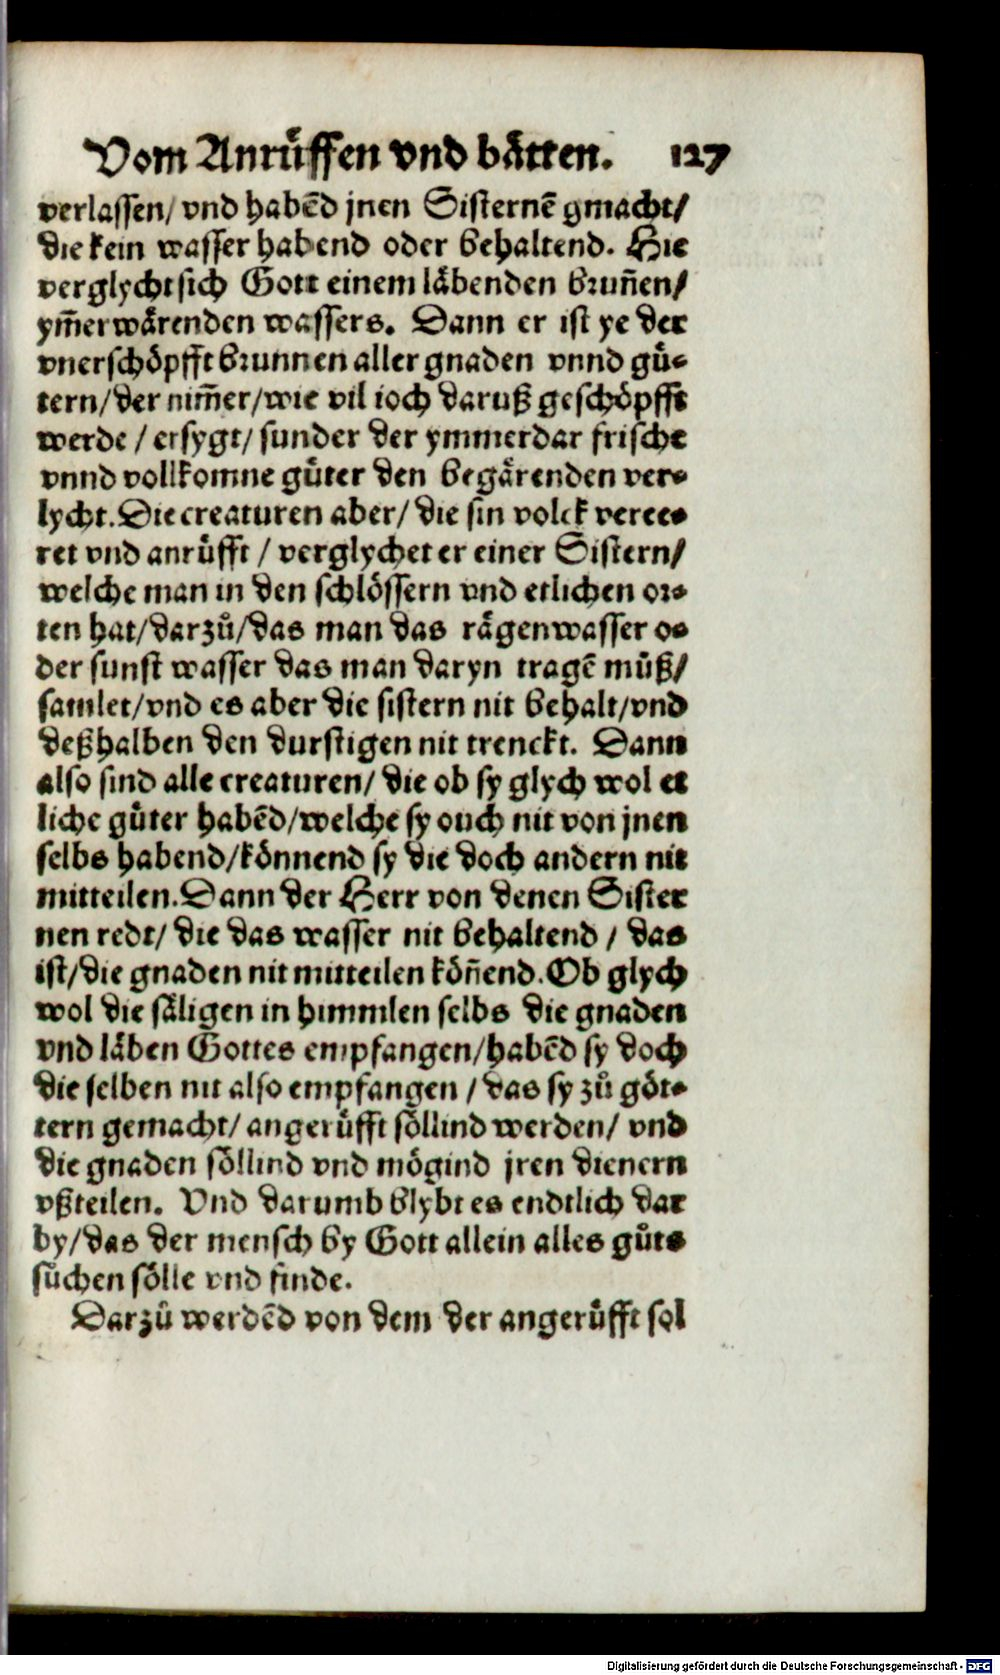 Vom Anrüffen vnd bätten. 127
verlassen/ vnd habēd jnen Sisternē gmacht/
die kein wasser habend oder behaltend. Hie
verglycht sich Gott einem läbenden brun̄en/
ym̄erwärenden wassers. Dann er ist ye der
vnerschöpfft brunnen aller gnaden vnnd gü-
tern/ der nim̄er/ wie vil ioch daruß geschöpfft
werde / ersygt/ sunder der ymmerdar frische
vnnd vollkomne güter den begärenden ver-
lycht. Die creaturen aber/ die sin volck veree-
ret vnd anrüfft / verglychet er einer Sistern/
welche man in den schlössern vnd etlichen or-
ten hat/ darzů/ das man das rägenwasser o-
der sunst wasser das man daryn tragē můß/
samlet/ vnd es aber die sistern nit behalt/ vnd
deßhalben den durstigen nit trenckt. Dann
also sind alle creaturen/ die ob sy glych wol et
liche güter habēd/ welche sy ouch nit von jnen
selbs habend/ könnend sy die doch andern nit
mitteilen. Dann der Herr von denen Sister
nen redt/ die das wasser nit behaltend / das
ist/ die gnaden nit mitteilen kön̄end. Ob glych
wol die säligen in himmlen selbs die gnaden
vnd läben Gottes empfangen/ habēd sy doch
die selben nit also empfangen / das sy zů göt-
tern gemacht/ angerüfft söllind werden/ vnd
die gnaden söllind vnd mögind jren dienern
vßteilen. Vnd darumb blybt es endtlich dar
by/ das der mensch by Gott allein alles gůts
sůchen sölle vnd finde.
Darzů werdēd von dem der angerüfft sol
Digitalisierung gefördert durch die Deutsche Forschungsgemeinschaft - DFG